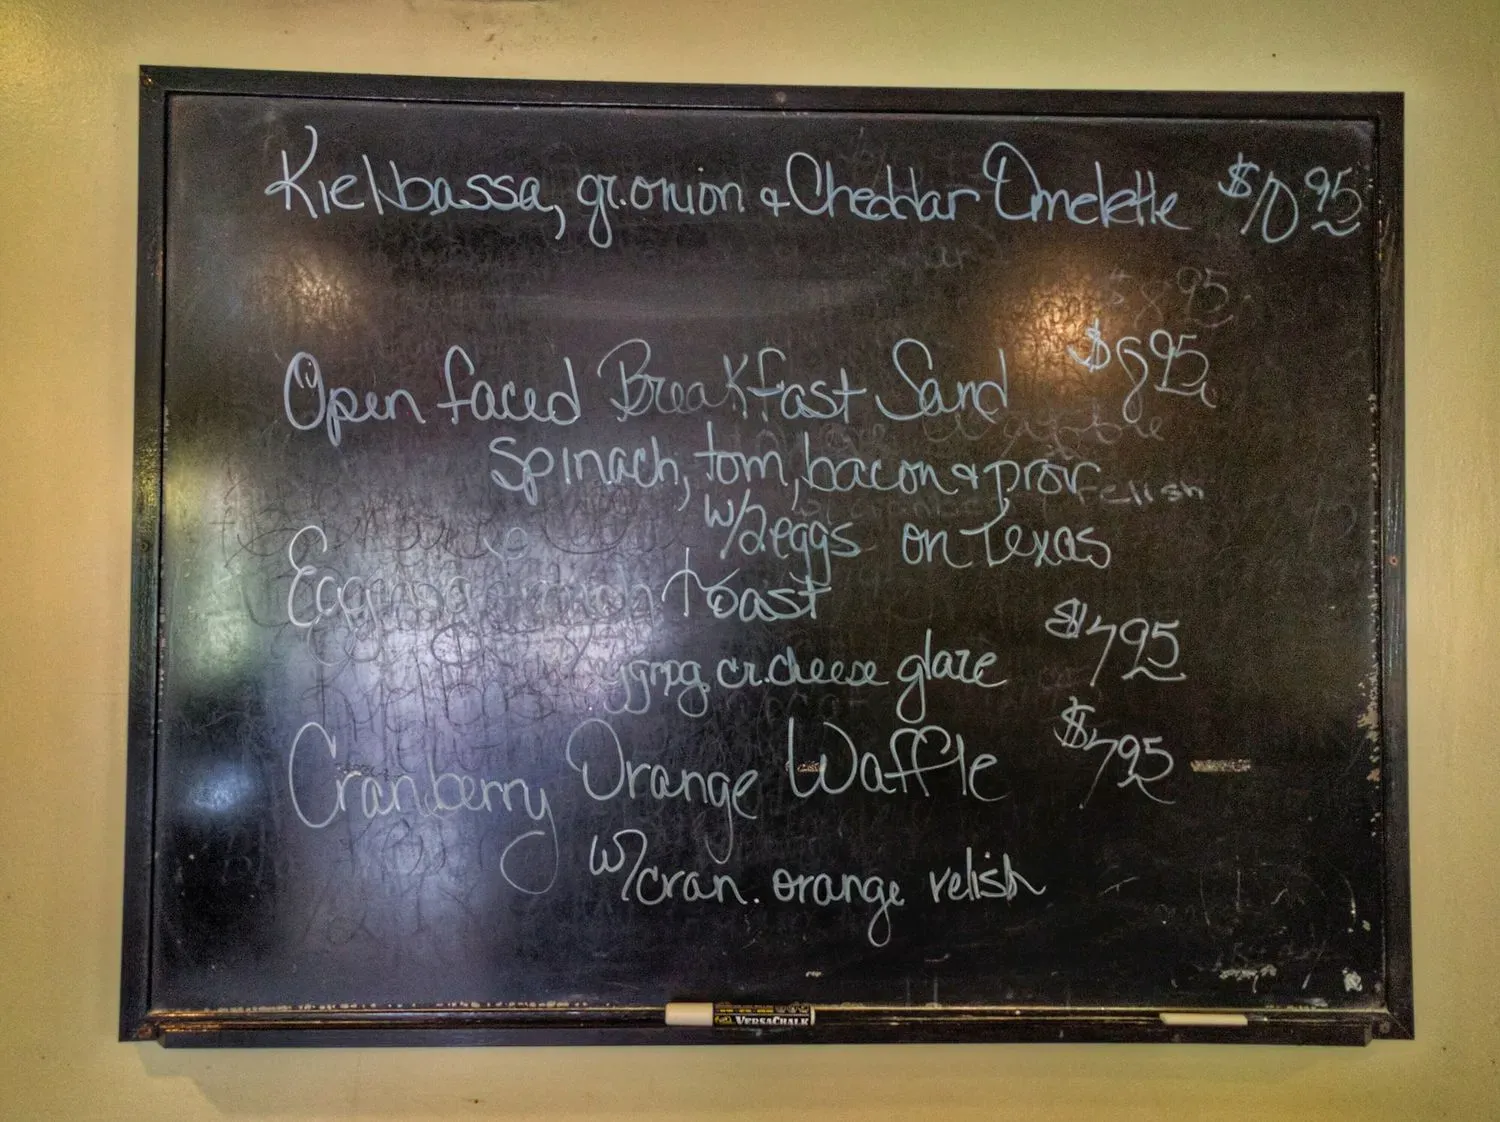 Kielbassa, gr.onion & Cheddar Omelette $10.95
$8.95
Open faced Breakfast Sand $8.95
Spinach, tom, bacon & prov
relish
w/2eggs on Texas
toast
$7.95
cr.cheese glaze
Cranberry Orange Waffle $7.95
w/cran. orange relish
VERSACHALK